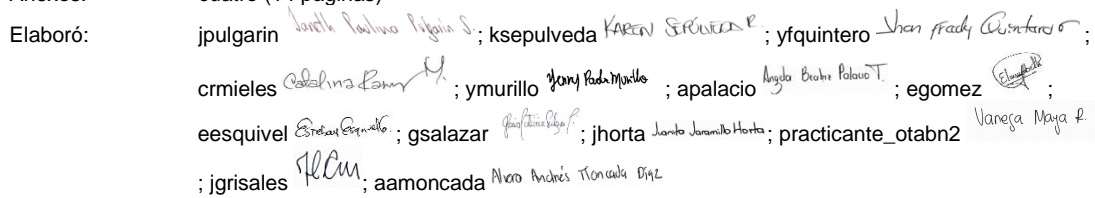 Elaboró: jpulgarin Janeth Paulina Pulgarín S.; ksepulveda KAREN SEPÚLVEDA R; yfquintero Jhan fredy Quintero; 
crmieles Catalina Ramy M.; ymurillo Yenny Paola Murillo; apalacio Angela Beatriz Palacio T.; egomez ;
eesquivel Esteban Esquivel G.; gsalazar ; jhorta Juanita Jaramillo Horta; practicante_otabn2 Vanesa Maya R.
; jgrisales ; aamoncada Alvaro Andrés Moncada Díaz